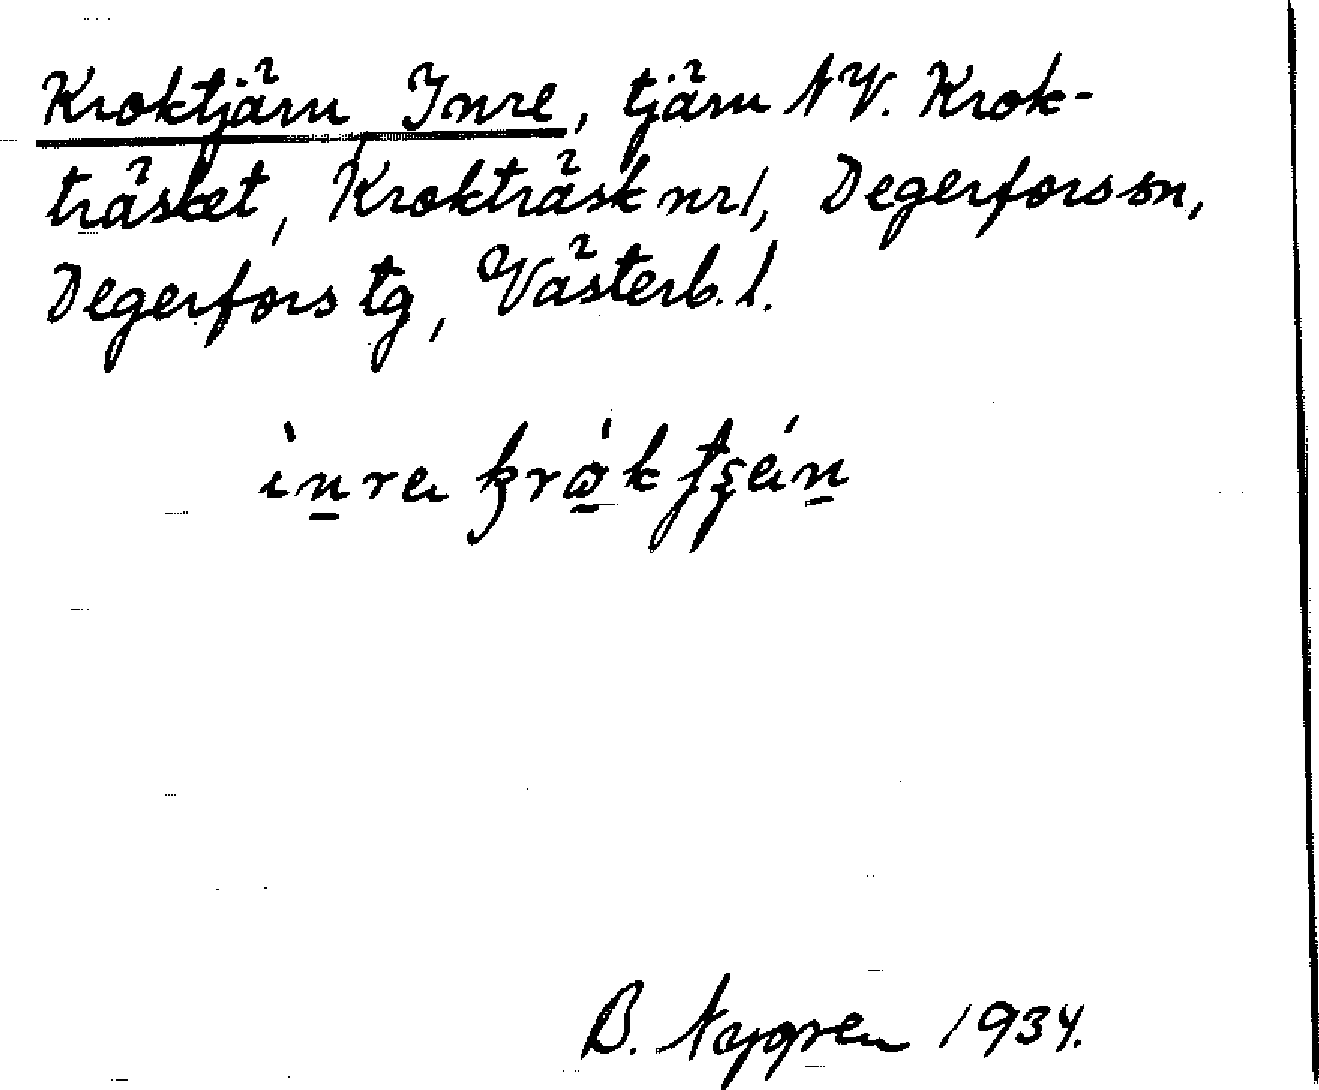 Kroktjärn Inre, tjärn NV. Krok-
träsket, Krokträsk nr 1, Degerfors sn,
Degerfors tg, Västerb. l.
B. Nygren 1934.